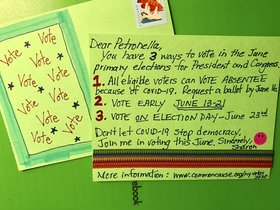 Vote
Vote
Vote
Vote
Vote
Vote
Vote
Vote
Vote
Vote
Dear Petronella,
You have 3 ways to vote in the June
primary elections for President and Congress.
1. All eligible voters can VOTE ABSENTEE
because of COVID-19. Request a ballot by June 16.
2. VOTE EARLY JUNE 13-21
3. VOTE ON ELECTION DAY - June 23rd
Don't let COVID-19 stop democracy.
Join me in voting this June. Sincerely,
Sharon
More information: www.commoncause.org/ny
ebook